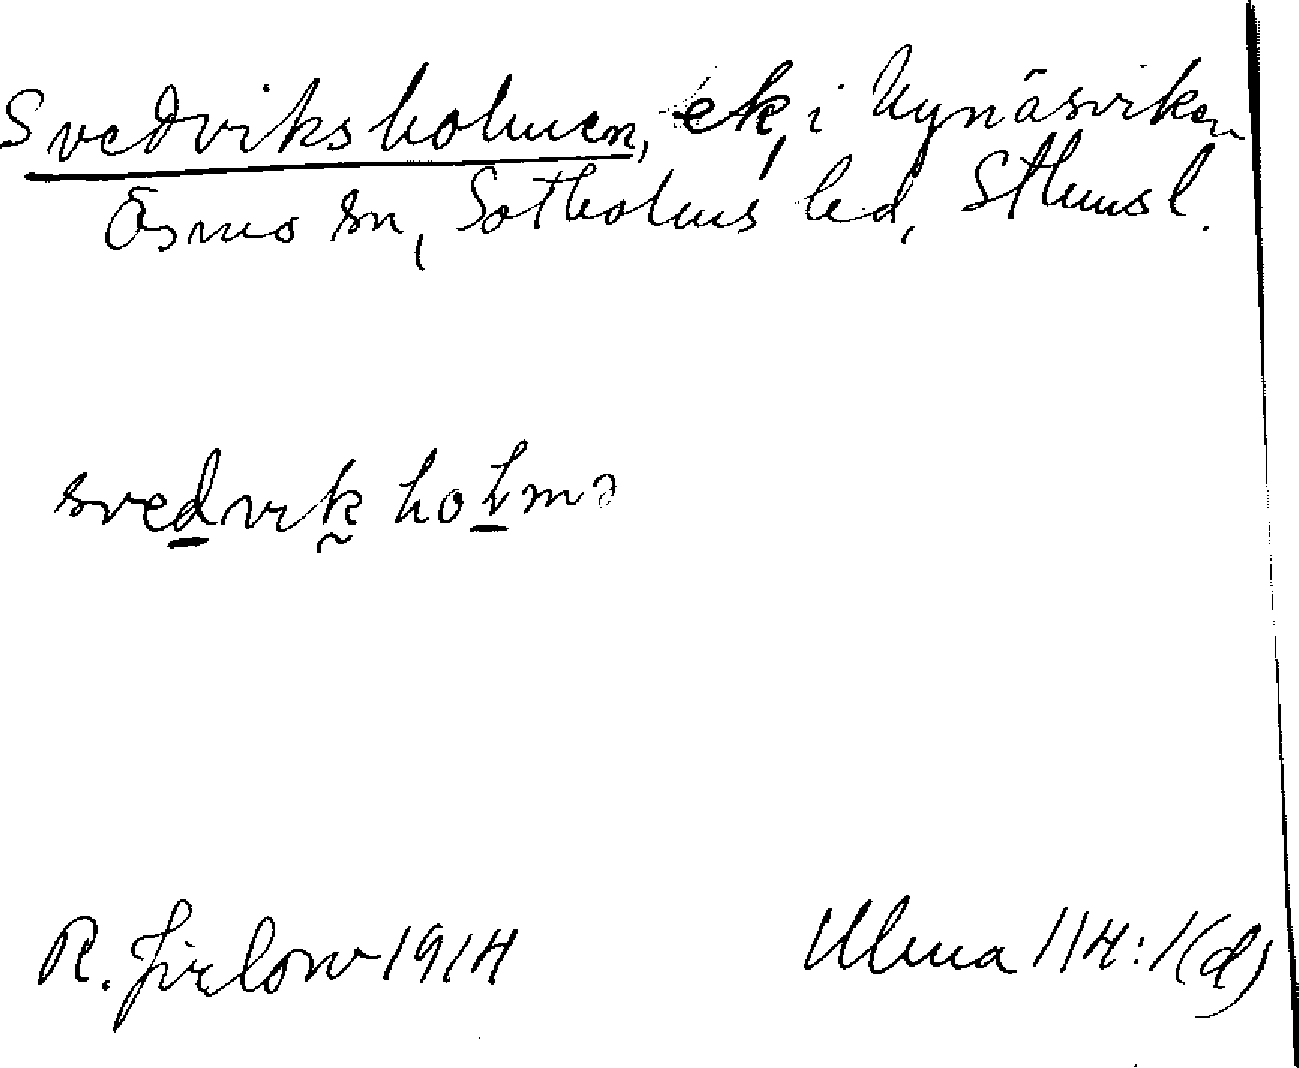 Svedviksholmen, ek, i Nynäsviken
Ösmo sn, Sotholms hd, Sthms l.
svedvik holmə
R. Jirlow 1914
Ulma 114:1(d)